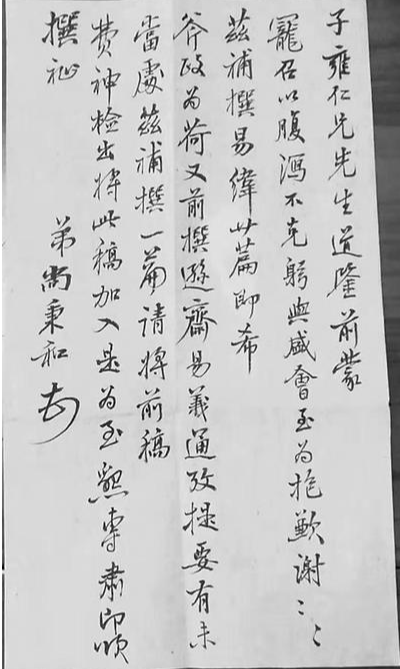 子雍仁兄先生道鉴前蒙
寵召以腹瀉不克躬與盛會至为抱歉谢〻
兹補撰易緯廿篇即希
斧政为荷又前撰遯齋易義通攷提要有未
當處兹補撰一篇請将前稿
费神检出将此稿加入是为至懇專肃即颂
撰祉
弟尚秉和